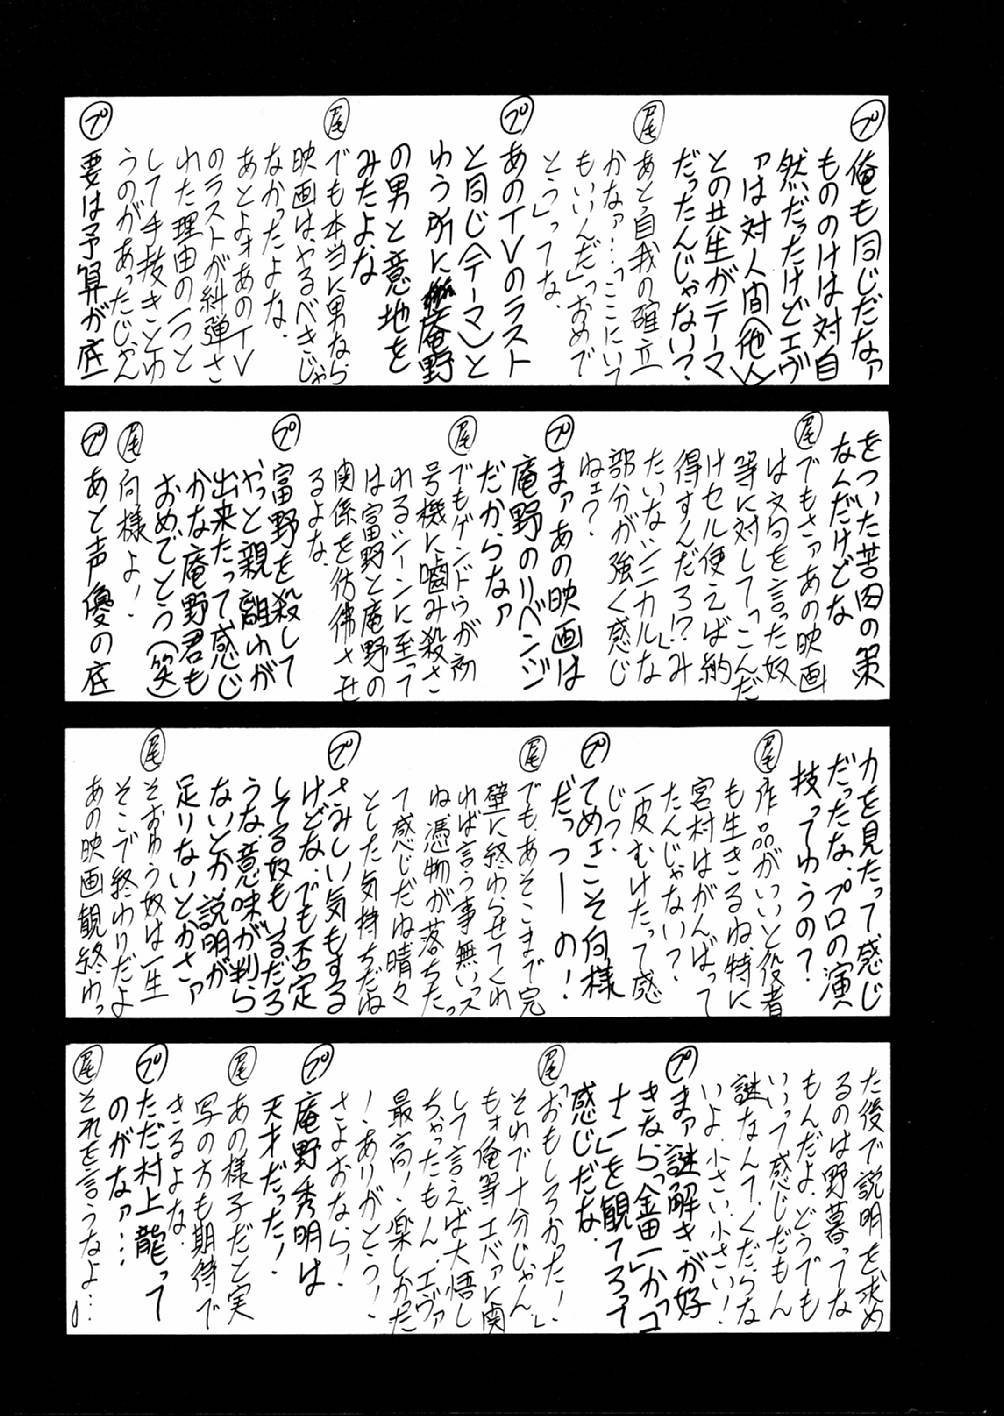 プ 俺も同じだだなァ
もののけは対自
然だったけどエヴ
ァは対人間(他人)
との共生がテーマ
だったんじゃない?
尾 あとう自我の確立
かなァ…「ここにいて
もいいんだ」「おめで
とう」ってな、
プ あのTVのラスト
と同じ〈テーマ〉と
ゆう所に庵野
の男と意地を
みたよな
尾 でも本当に男なら
映画は、やるべきじゃ
なかったよな、
あとよォあのTV
のラストが糾弾さ
れた理由の一つと
して手抜きとゆ
うのがあったじゃん
プ 要は予算が底
をついた苦肉の策
なんだけどな
尾 でもさァあの映画
は文句を言った奴
等に対して「こんだ
けセル使えば納
得すんだろ!?」み
たいなシニカルな
部分が強く感じ
ねェ?
プ まァあの映画は
庵野のリベンジ
だからなァ
尾 でもゲンドウが初
号機に噛み殺さ
れるシーンに至って
は富野と庵野の
関係を彷彿させ
るよな、
プ 富野を殺して
やっと親離れが
出来たって感じ
かな庵野君も
おめでとう(笑)
尾 何様よ!
プ あと声優の底
力を見たって感じ
だったな、プロの演
技ってゆうの?
尾 作品がいいと役者
も生きるね、特に
宮村はがんばって
たんじゃない?
一皮むけたって感
じっ、
プ てめェこそ何様
だっつーの!
尾 でも、あそこまで完
璧に終わらせてくれ
れば言う事無いっス
ね憑物が落ちたっ
て感じだね晴々
とした気持ちだね
プ さみしい気もする
けどな、でも否定
してる奴もいるだろ
うな、意味が判ら
ないとか、説明が
足りないとかさァ
尾 そおゆう奴は一生
そこで終わりだよ
あの映画観終わっ
た後で説明を求め
るのは野暮ってな
もんだよ、どうでも
いいって感じだもん
謎なんて、くだらな
いよ、小さい小さい!
プ まァ謎解きが好
きなら「金田一」か「コ
ナン」を観てろって
感じだな、
尾 「おもしろかった!」
それで十分じゃん、
もォ俺等エバァに関
して言えば大悟し
ちゃったもん、エヴァ
最高!、楽しかった
!、ありがとう!、
さよおなら!、
プ 庵野秀明は
天才だった!
尾 あの様子だと実
写の方も期待で
きるよな、
プ ただ村上龍って
のがなァ…
尾 それを言うなよ…